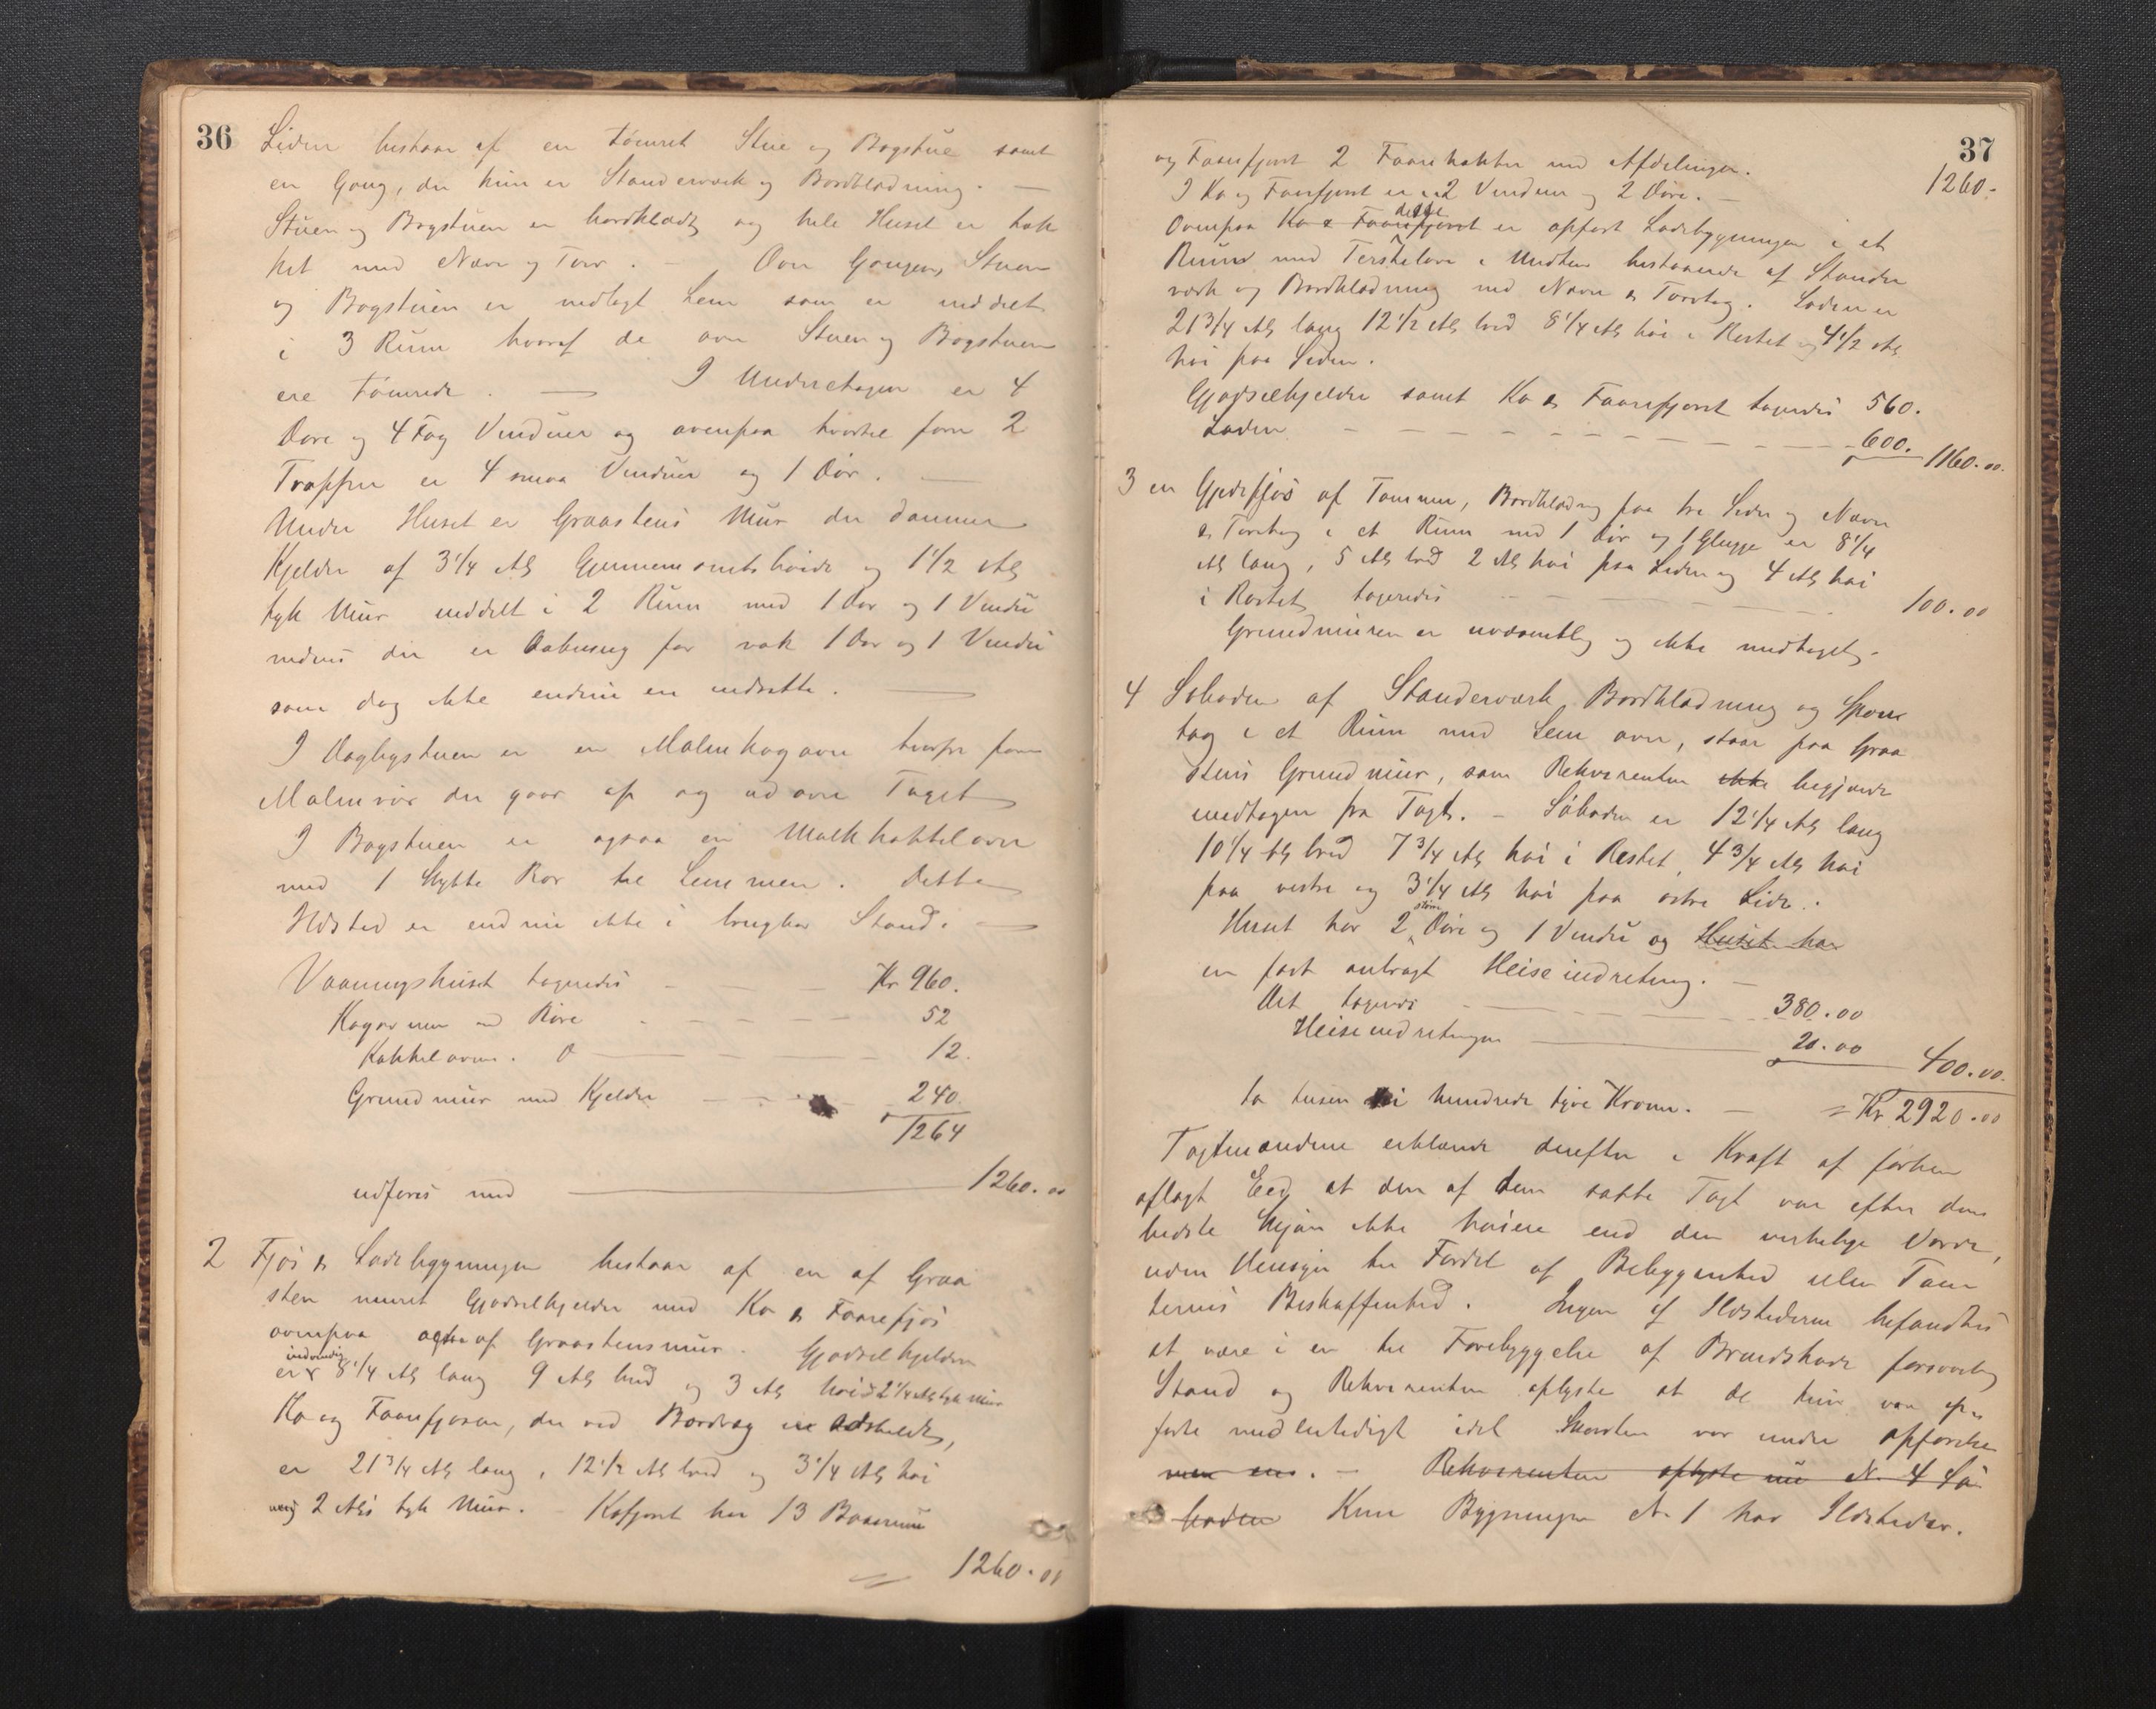 36
Siden bestaar af en tømret Stue og Bagstue samt
en Gang, der kun er Standerværk og Bordklædning. —
Stuen og Bagstuen er bordklædt og hele Huset er tæk
ket med Næver og Torv. — Over Gangen, Stuen
og Bagstuen er nedlagt Lem som er inddelt
i 3 Rum hvoraf de over Stuen og Bagstuen
ere tømrede. — I Underetagen er 4
Døre og 4 Fag Vinduer og ovenpaa hvortil fører 2
Trapper er 4 smaa Vinduer og 1 Dør. —
Under Huset er Graastens Mur der danner
Kjelder af 3 1/4 Al Gjennemsnitshøide og 1 1/2 Al
tyk Mur inddelt i 2 Rum med 1 Dør og 1 Vindu
medens der er Aabning for 1 Dør og 1 Vindu
som dog ikke endnu er indsatte. —
I Dagligstuen er en Malmkogovn hvorfra fører
Malmrør der gaar op og ud over Taget
I Bagstuen er ogsaa en kakkelovn
med 1 Stykke Rør til Lemmen. Dette
Ildsted er endnu ikke i brugbar Stand. —
Vaaningshuset taxeredes — Kr 960.
Kogovnen med Røre — 52
Kakkelovnen — 12.
Grundmur med Kjelder — 240
1264
udføres med — 1260.00
2 Fjøs & Ladebygningen bestaar af en af Graa
sten muret Gjødselkjelder med Ko & Faarefjøs
ovenpaa af Graastensmur. Gjødselkjelderen
indvendig
er 8 1/4 Al lang 9 Al bred og 3 Al høi & 2 1/4 Al tyk Mur
Ko og Faarefjøsen, der ved Bordvæg er adskildt,
er 21 3/4 Al lang, 12 1/2 Al bred og 3 1/4 Al høi
2 Al tyk Mur. – Kofjøset har 13 Baaserum
1260.00
37
og Faarefjøset 2 Faarekakker med Afdelinger.
1260.
I Ko og Faarefjøset er 2 Vinduer og 2 Døre. —
dette
Ovenpaa Ko & Faarefjøset er opført Ladebygningen i et
Rum med Terskelove i Midten bestaaende af Stander
værk og Bordklædning med Næver & Torvtag. Laden er
21 3/4 Al lang 12 1/2 Al bred 8 1/4 Al høi i Røstet og 4 1/2 Al
høi paa Siden.
Gjødselkjelder samt Ko & Faarefjøset taxeredes 560.
Laden — 600. 1160.00
3 en Gjedefjøs af Tømmer, Bordklædning paa tre Sider og Næver
& Torvtag i et Rum med 1 Dør og 1 Glugge er 8 1/4
Al lang, 5 Al bred 2 Al høi paa Siden og 4 Al høi
i Røstet taxeredes — 100.00
Grundmuren er uvæsentlig og ikke medtaget. –
4 Søboden af Standerværk Bordklædning og Spon
tag i et Rum med Lem over, staar paa Graa
stens Grundmur, som Rekvirenten ikke begjærede
medtagen fra Taxt. – Søboden er 12 1/4 Al lang
10 1/4 Al bred 7 3/4 Al høi i Røstet, 4 3/4 Al høi
paa vestre og 3 1/4 Al høi paa østre Side.
større
Huset har 2 Døre og 1 Vindu og Huset har
en fast anbragt Heiseindretning. —
Det taxeredes — 380.00
Heiseindretningen — 20.00
400.00
to tusen ni hundrede tyve Kroner. — = Kr 2920.00
Taxtmændene erklærede derefter i Kraft af forhen
aflagt Eed at den af dem satte Taxt var efter deres
bedste Skjøn ikke høiere end den virkelige Værdi,
uden Hensyn til Fordel af Beliggenhed eller Tom
ternes Beskaffenhed. Ingen af Ildstederne befandtes
at være i en til Forebyggelse af Brandskade forsvarlig
Stand og Rekvirenten oplyste at de kun var op-
førte midlertidigt idet Skorsten var under opførelse
men – Rekvirenten oplyste N. 4 Sø
boden Kun Bygningen N. 1 har Ildsteder.